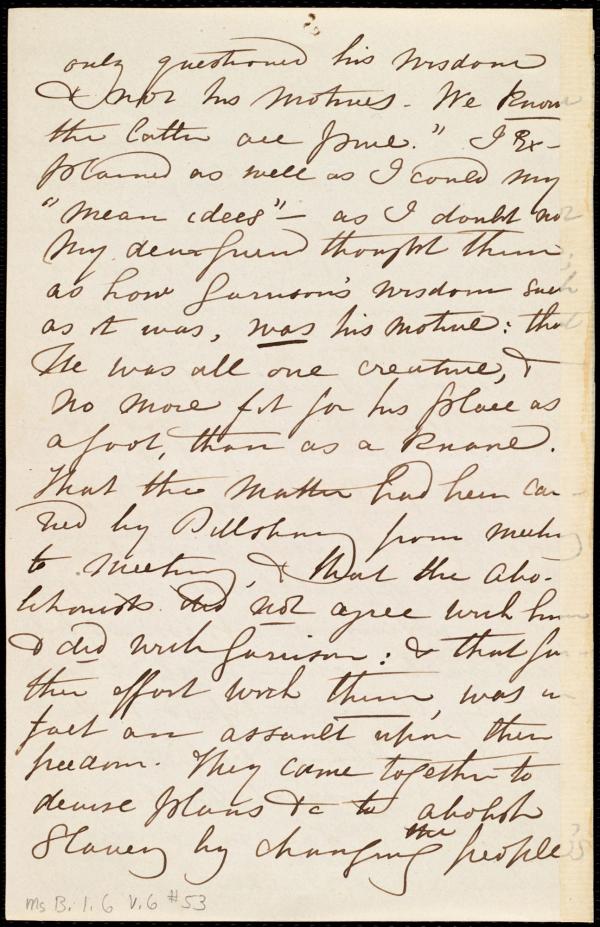 only questioned his wisdom
& not his motives. We know
the latter are pure." I Ex-
plained as well as I could my
"mean idees" — as I doubt not
my dear friend thought them
as how Garrison's wisdom such
as it was, was his motive: that
He was all one creature, &
no more fit for his place as
a fool, than as a knave.
That the matter had been car-
ried by Pillsbury from meeting
to meeting, & that the abo-
litionists did not agree with him
& did with Garrison: & that fur
ther effort with them, was in
fact an assault upon their
freedom. They came together to
devise plans &c to abolish
Slavery by changing the people
Ms B. 1. 6 V. 6 #53